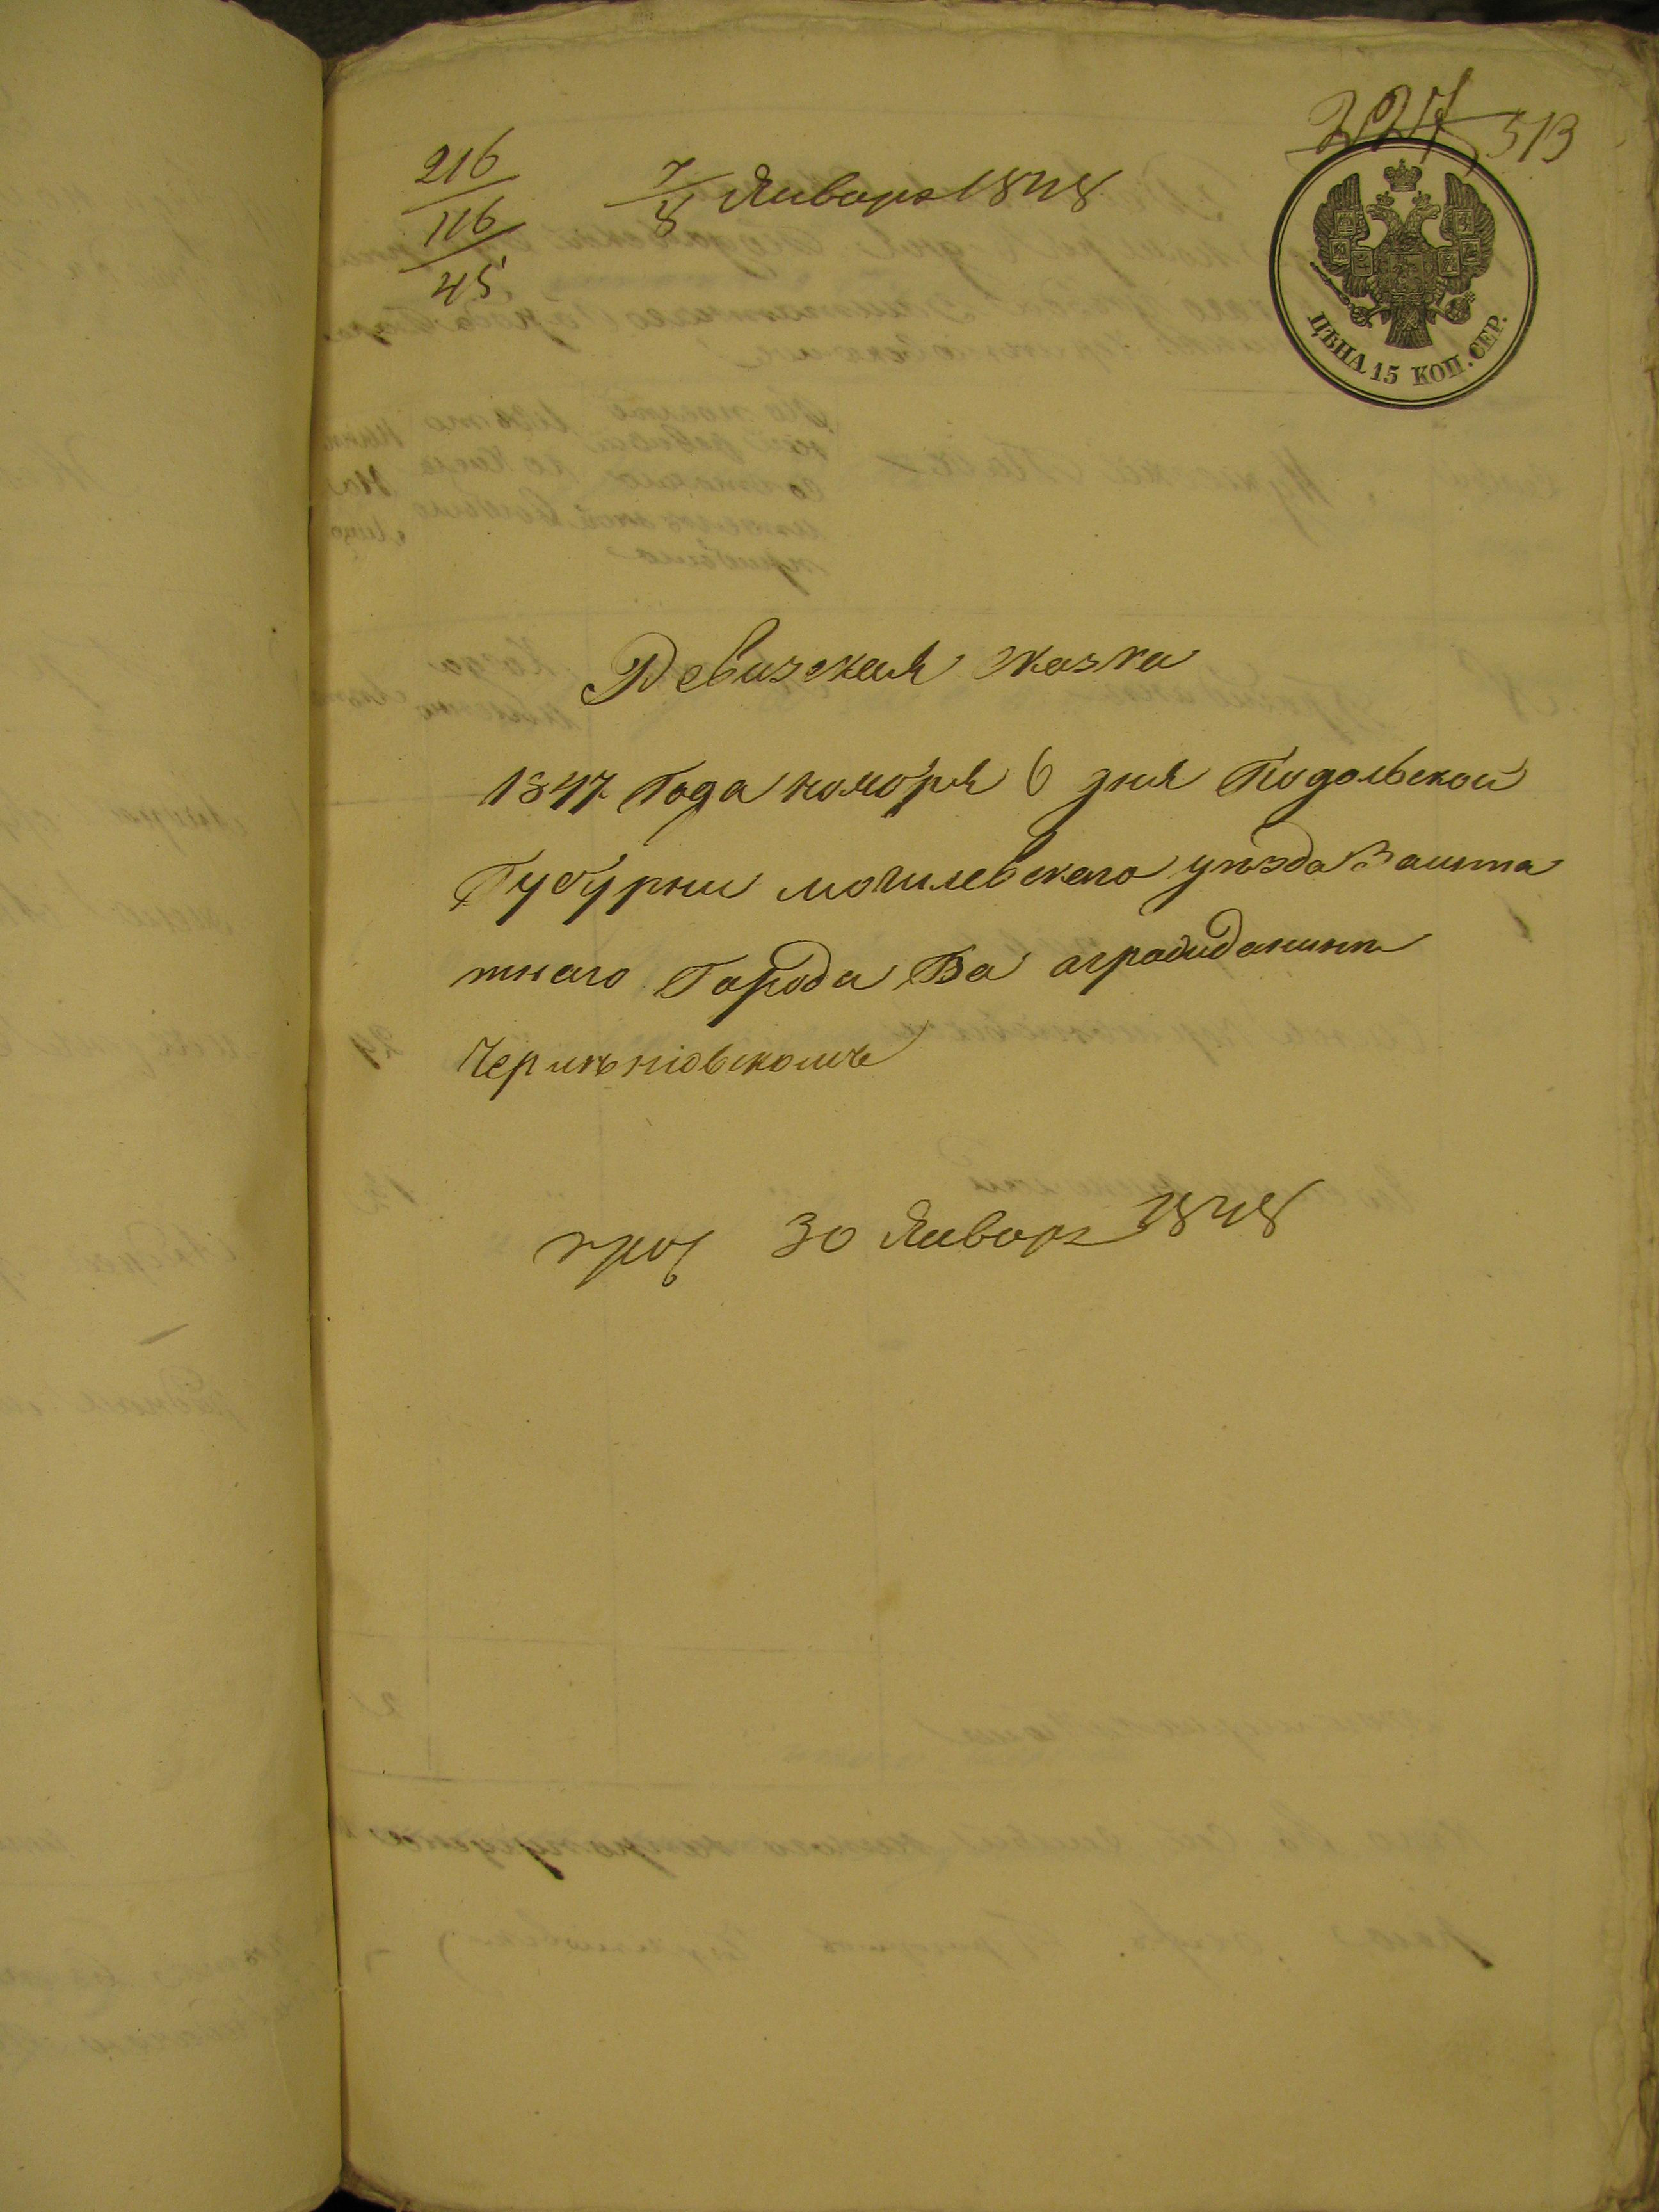 227 513
216
116
45
7/8 Январь 1848
ЦѢНА 15 КОП. СЕР.
Ревизская сказка
1847 Года ноября 6 дня Подольской
Губурни могилевскаго уѣзда Зашта
тнаго Города Ба оградиданинѣ
Чермѣнювскомъ
30 Январь 1848